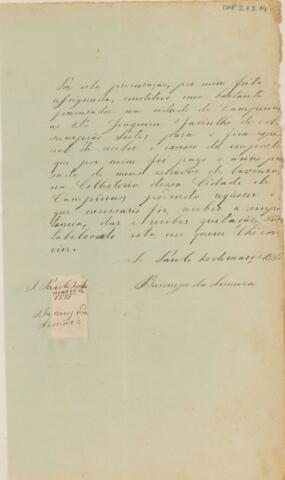 Por esta procuração, por mim feita e
assignada, constituo meu bastante
procurador na cidade de Campinas
ao Sr. Joaquim
para o fim espe
cial de receber o excesso do imposto
que por mim foi pago o anno pas
sado de meus escravos de lavoura,
na Collectoria dessa Cidade de
Campinas, podendo o
que necessario for, receber a impor
tancia, dar e receber quitação, subs
tabelecendo esta em quem lhe con
vier.
S. Paulo 20 de março
Baroneza de Limeira
S. Paulo 20 de
março
Baroneza de
Limeira